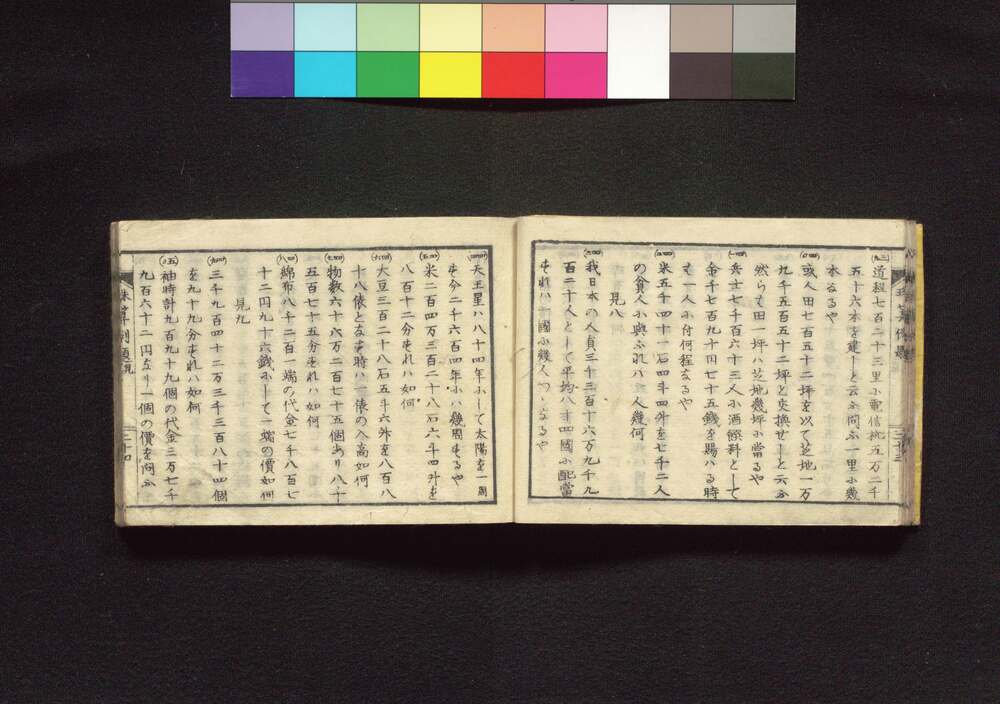 (三九)道程七百二十三里ニ電信杭五万二千
五十六本を建しと云ふ問ふ一里ニ幾
本なるや
(四〇)或人田七百五十二坪を以て芝地一万
九千五百五十二坪と交換せしと云ふ
然らは田一坪ハ芝地幾坪ニ當るや
(四一)兵士七千百六十三人ニ酒餼料として
金千七百九十円七十五錢を賜ハる時
は一人ニ付何程なるや
(四二)米五千四十一石四斗四升を七千二人
の貧人ニ與ふれハ一人幾何
見八
(四三)我日本の人員三千三百十六万九千九
百二十人として平均八十四國ニ配當
すれハ一國ニ幾人つゝなるや
(四四)天王星ハ八十四年にして太陽を一周
す今二千六百四年にハ幾周するや
(四五)米二百四万三百二十八石六斗四升を
八百十二分すれハ如何
(四六)大豆三百二十八石五斗六升を八百八
十八俵となす時ハ一俵の入高如何
(四七)物数六十六万二百七十五個あり八十
五百七十五分すれハ如何
(四八)綿布八千二百一端の代金七千八百七
十二円九十六錢にして一端の價如何
見九
(四九)三千九百四十二万三千三百八十四個
を九十九分すれハ如何
(五〇)袖時計九百九十九個の代金三万七千
九百六十二円なり一個の價を問ふ
珠算例題
二十四
二十三